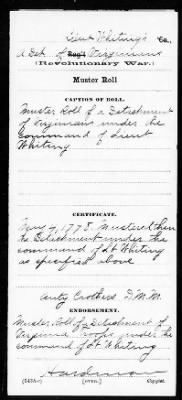 Lieut Whiting's Co.,
a Det. of Reg't Virginians
(Revolutionary War.)
Muster Roll
CAPTION OF ROLL.
Muster Roll of a Detachment
of Virginians under the
Command of Lieut
Whiting
CERTIFICATE.
May 4, 1778. Mustered then
the Detachment under the
command of Lt Whiting
as specified above
Crothers D.M.M.
ENDORSEMENT.
Muster Roll of a Detachment of
Virginia Troops under the
command of Lt Whiting
(543A.) (OVER.) Copyist.